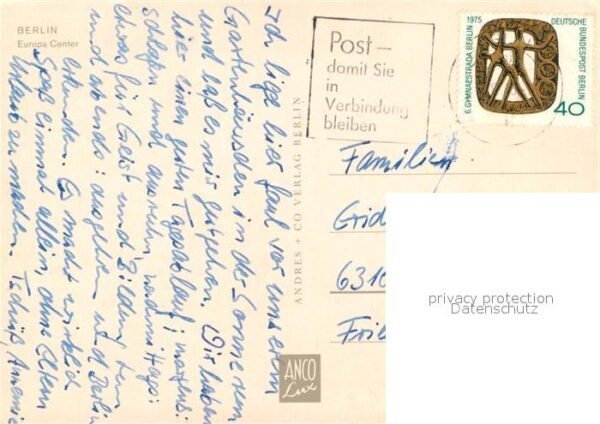 BERLIN
Europa Center
Ich liege hier faul vor unserem
Gartenhäuschen in der Sonne
und hab es mir gegeben. Wir haben
hier einen guten Tagesablauf: morgens:
schlafen und ausruhn, nachmittags:
etwas für Geist und Bildung tun
und abends: ausgehen und Berlin
erkunden. Es macht wirklich
Spaß einmal allein, ohne Eltern
Urlaub zu machen. Tschüß,
ANDRES + CO VERLAG BERLIN
ANCO
Lux
Post –
damit Sie
in
Verbindung
bleiben
6. GYMNAESTRADA BERLIN 1975
DEUTSCHE BUNDESPOST BERLIN
40
Familien
6310
privacy protection
Datenschutz